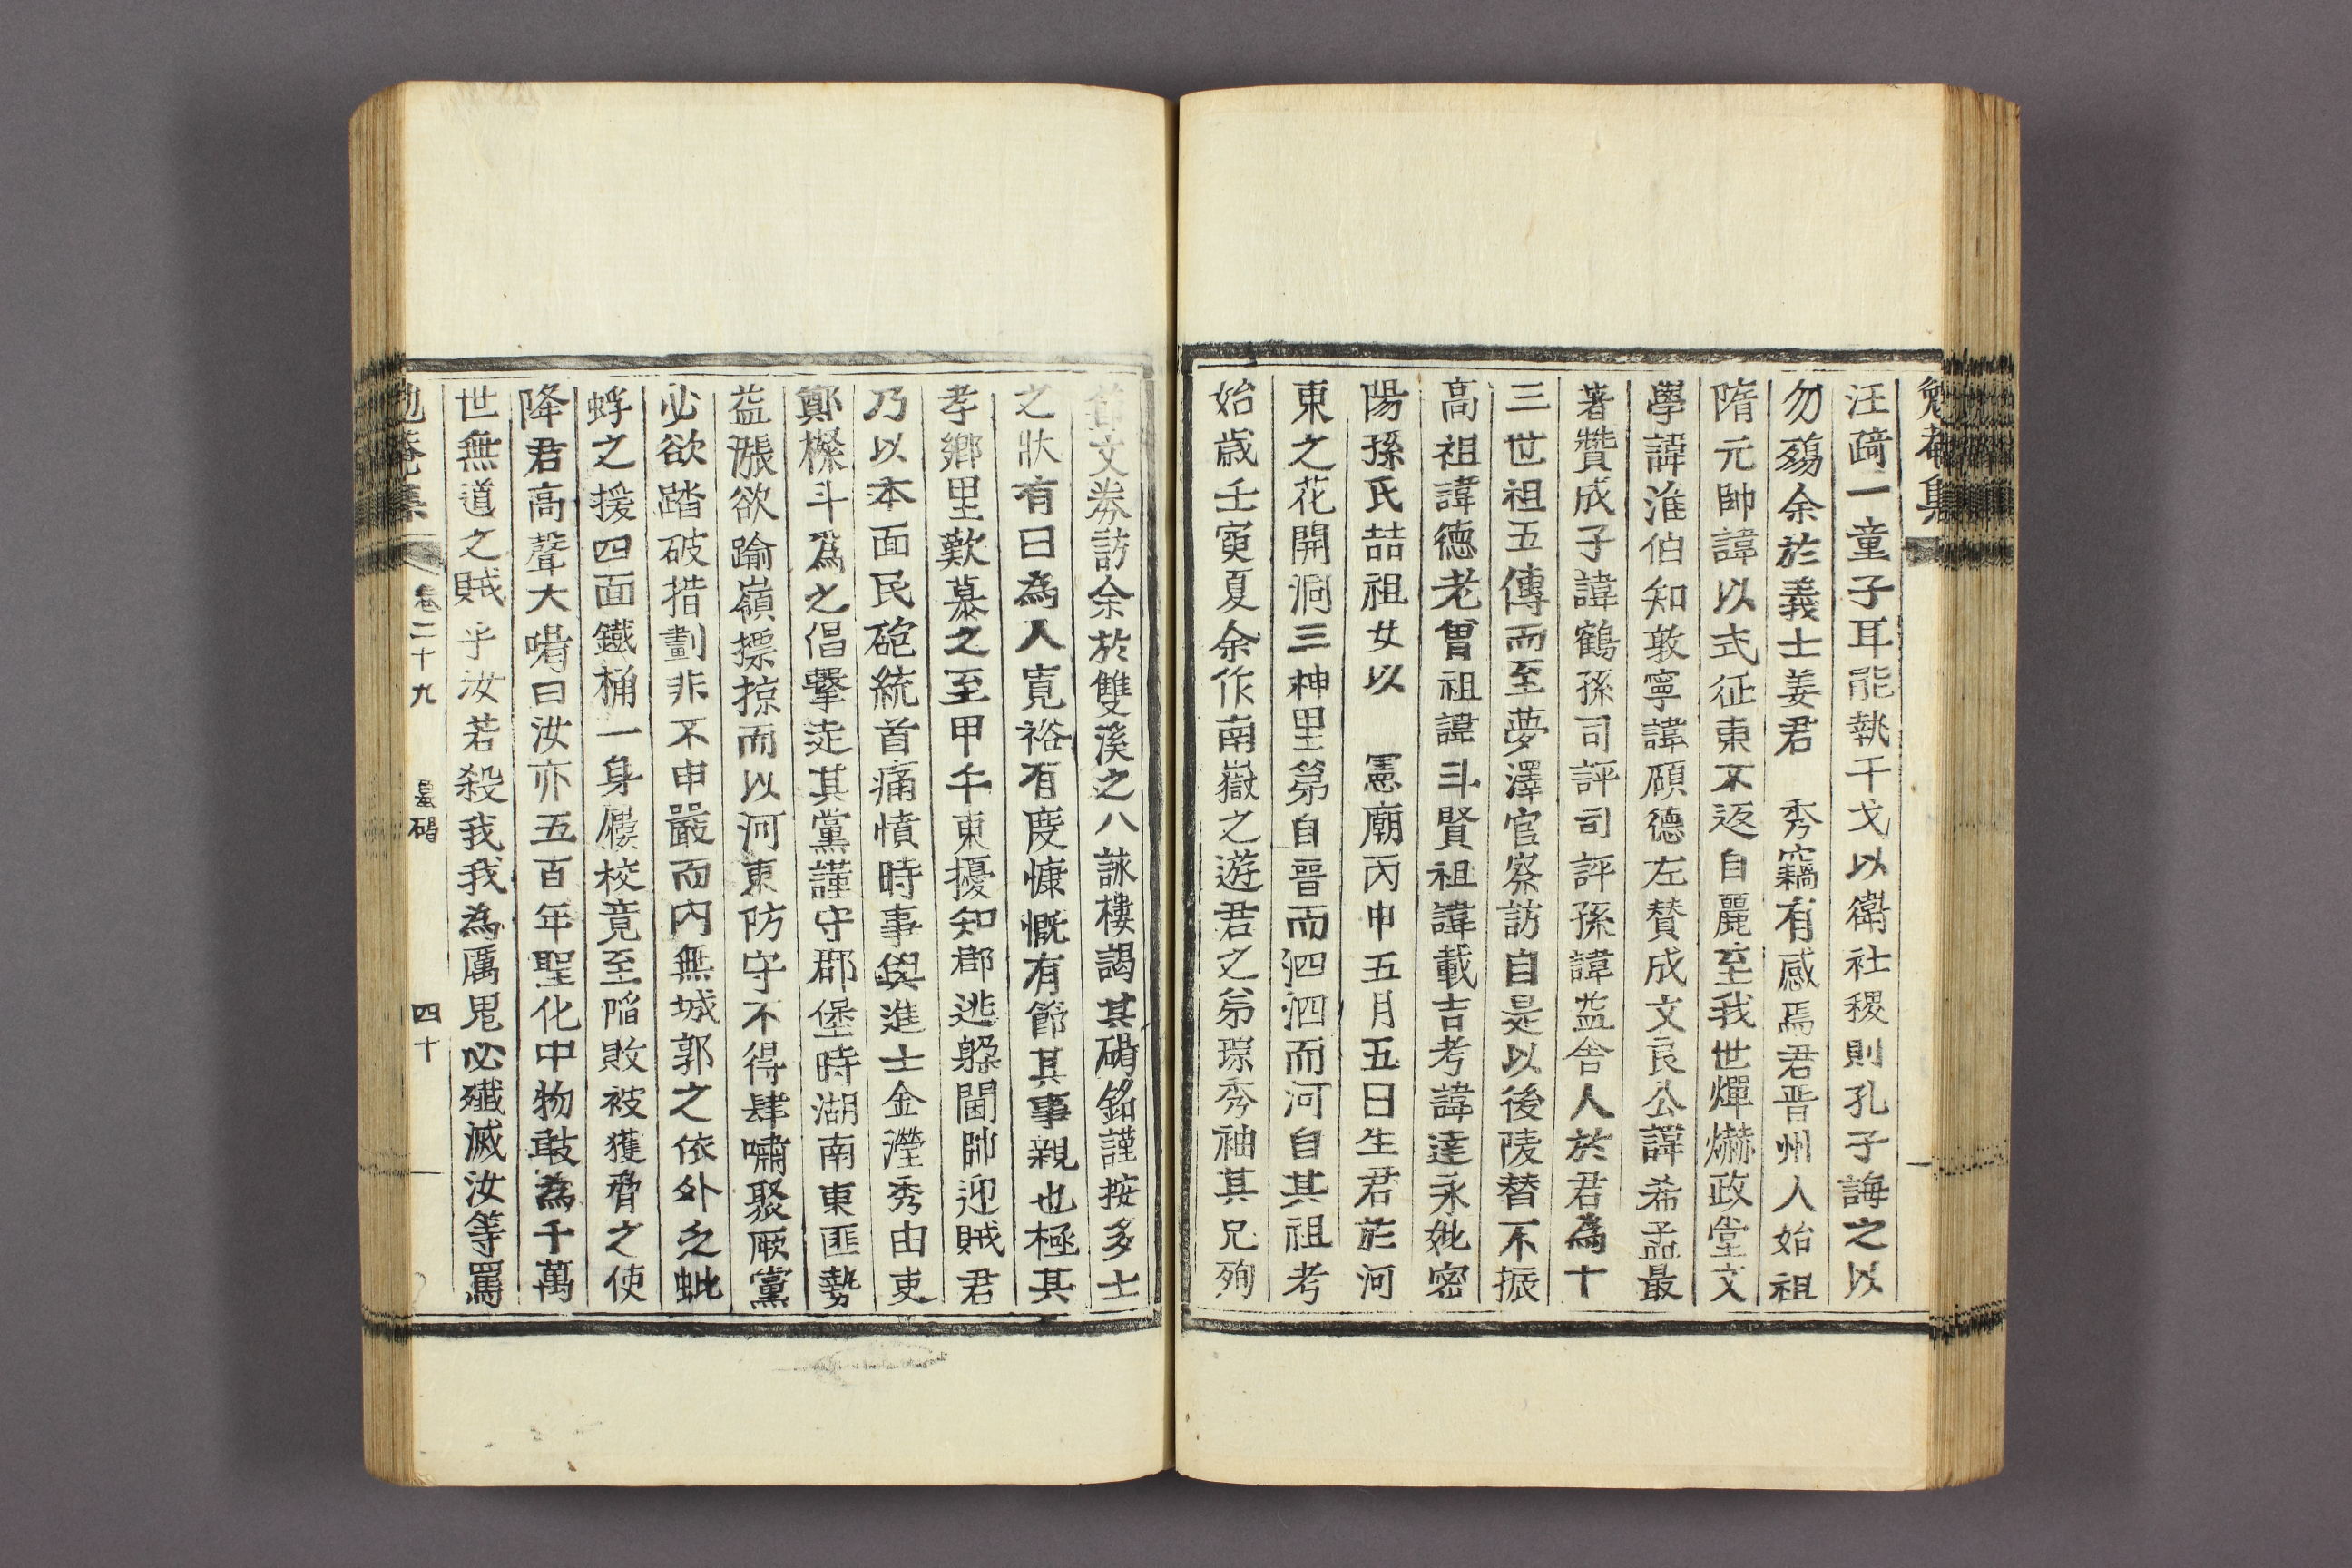 勉菴集
汪踦一童子耳能執干戈以衛社稷則孔子誨之以
勿殤余於義士姜君 秀竊有感焉君晋州人始祖
隋元帥諱以式征東不返自麗至我世燀爀政堂文
學諱淮伯知敦寧諱碩德左賛成文良公諱希孟最
著贊成子諱鶴孫司評司評孫諱益舍人於君為十
三世祖五傳而至夢澤官察訪自是以後陵替不振
高祖諱德老曾祖諱斗賢祖諱載吉考諱達永妣密
陽孫氏喆祖女以 憲廟丙申五月五日生君於河
東之花開洞三神里第自晋而泗泗而河自其祖考
始歲壬寅夏余作南嶽之遊君之弟琮秀袖其兄殉
節文券訪余於雙溪之八詠樓謁其碣銘謹按多士
之狀有曰為人寬裕有度慷慨有節其事親也極其
孝鄉里歎慕之至甲午東擾知郡逃躱閫帥迎賊君
乃以本面民砲統首痛憤時事與進士金瀅秀由吏
鄭樑斗爲之倡擊走其黨謹守郡堡時湖南東匪勢
益漲欲踰嶺摽掠而以河東防守不得肆嘯聚厥黨
必欲踏破措劃非不申嚴而内無城郭之依外乏蚍
蜉之援四面鐵桶一身僕校竟至陷敗被獲脅之使
降君高聲大喝曰汝亦五百年聖化中物敢為千萬
世無道之賊乎汝若殺我我為厲鬼必殲滅汝等罵
勉菴集 卷二十九 墓碣 四十